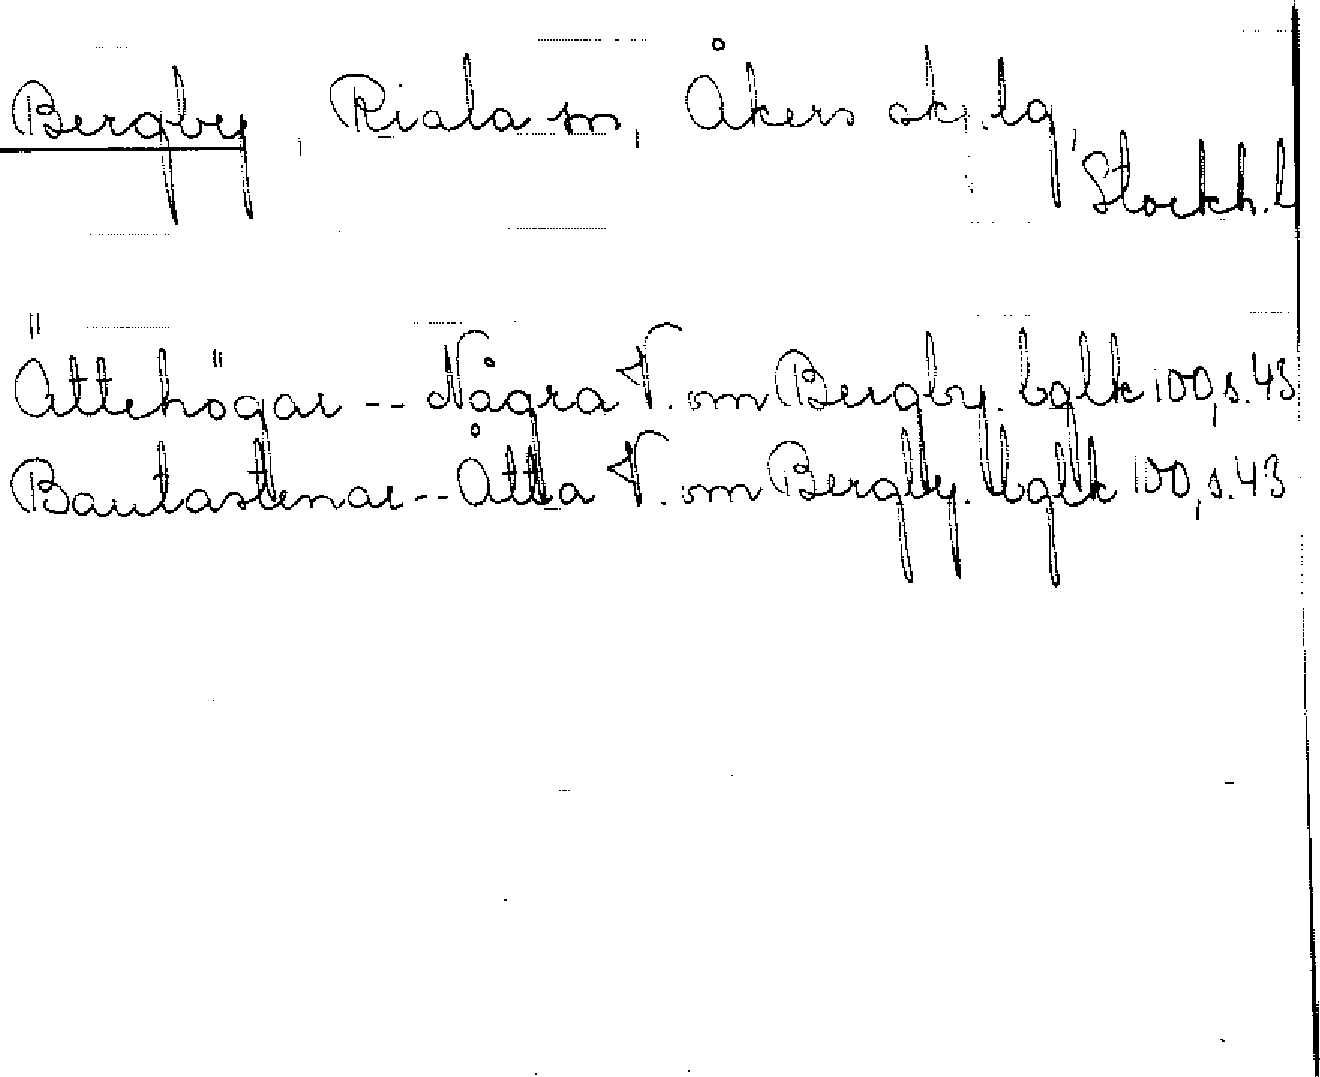 Bergby, Riala sn, Åkers skp.lg,
Stockh.l
Ättehögar -- Några V. om Bergby. bglk 100, s.43
Bautastenar -- Åtta V. om Bergby. bglk 100, s.43